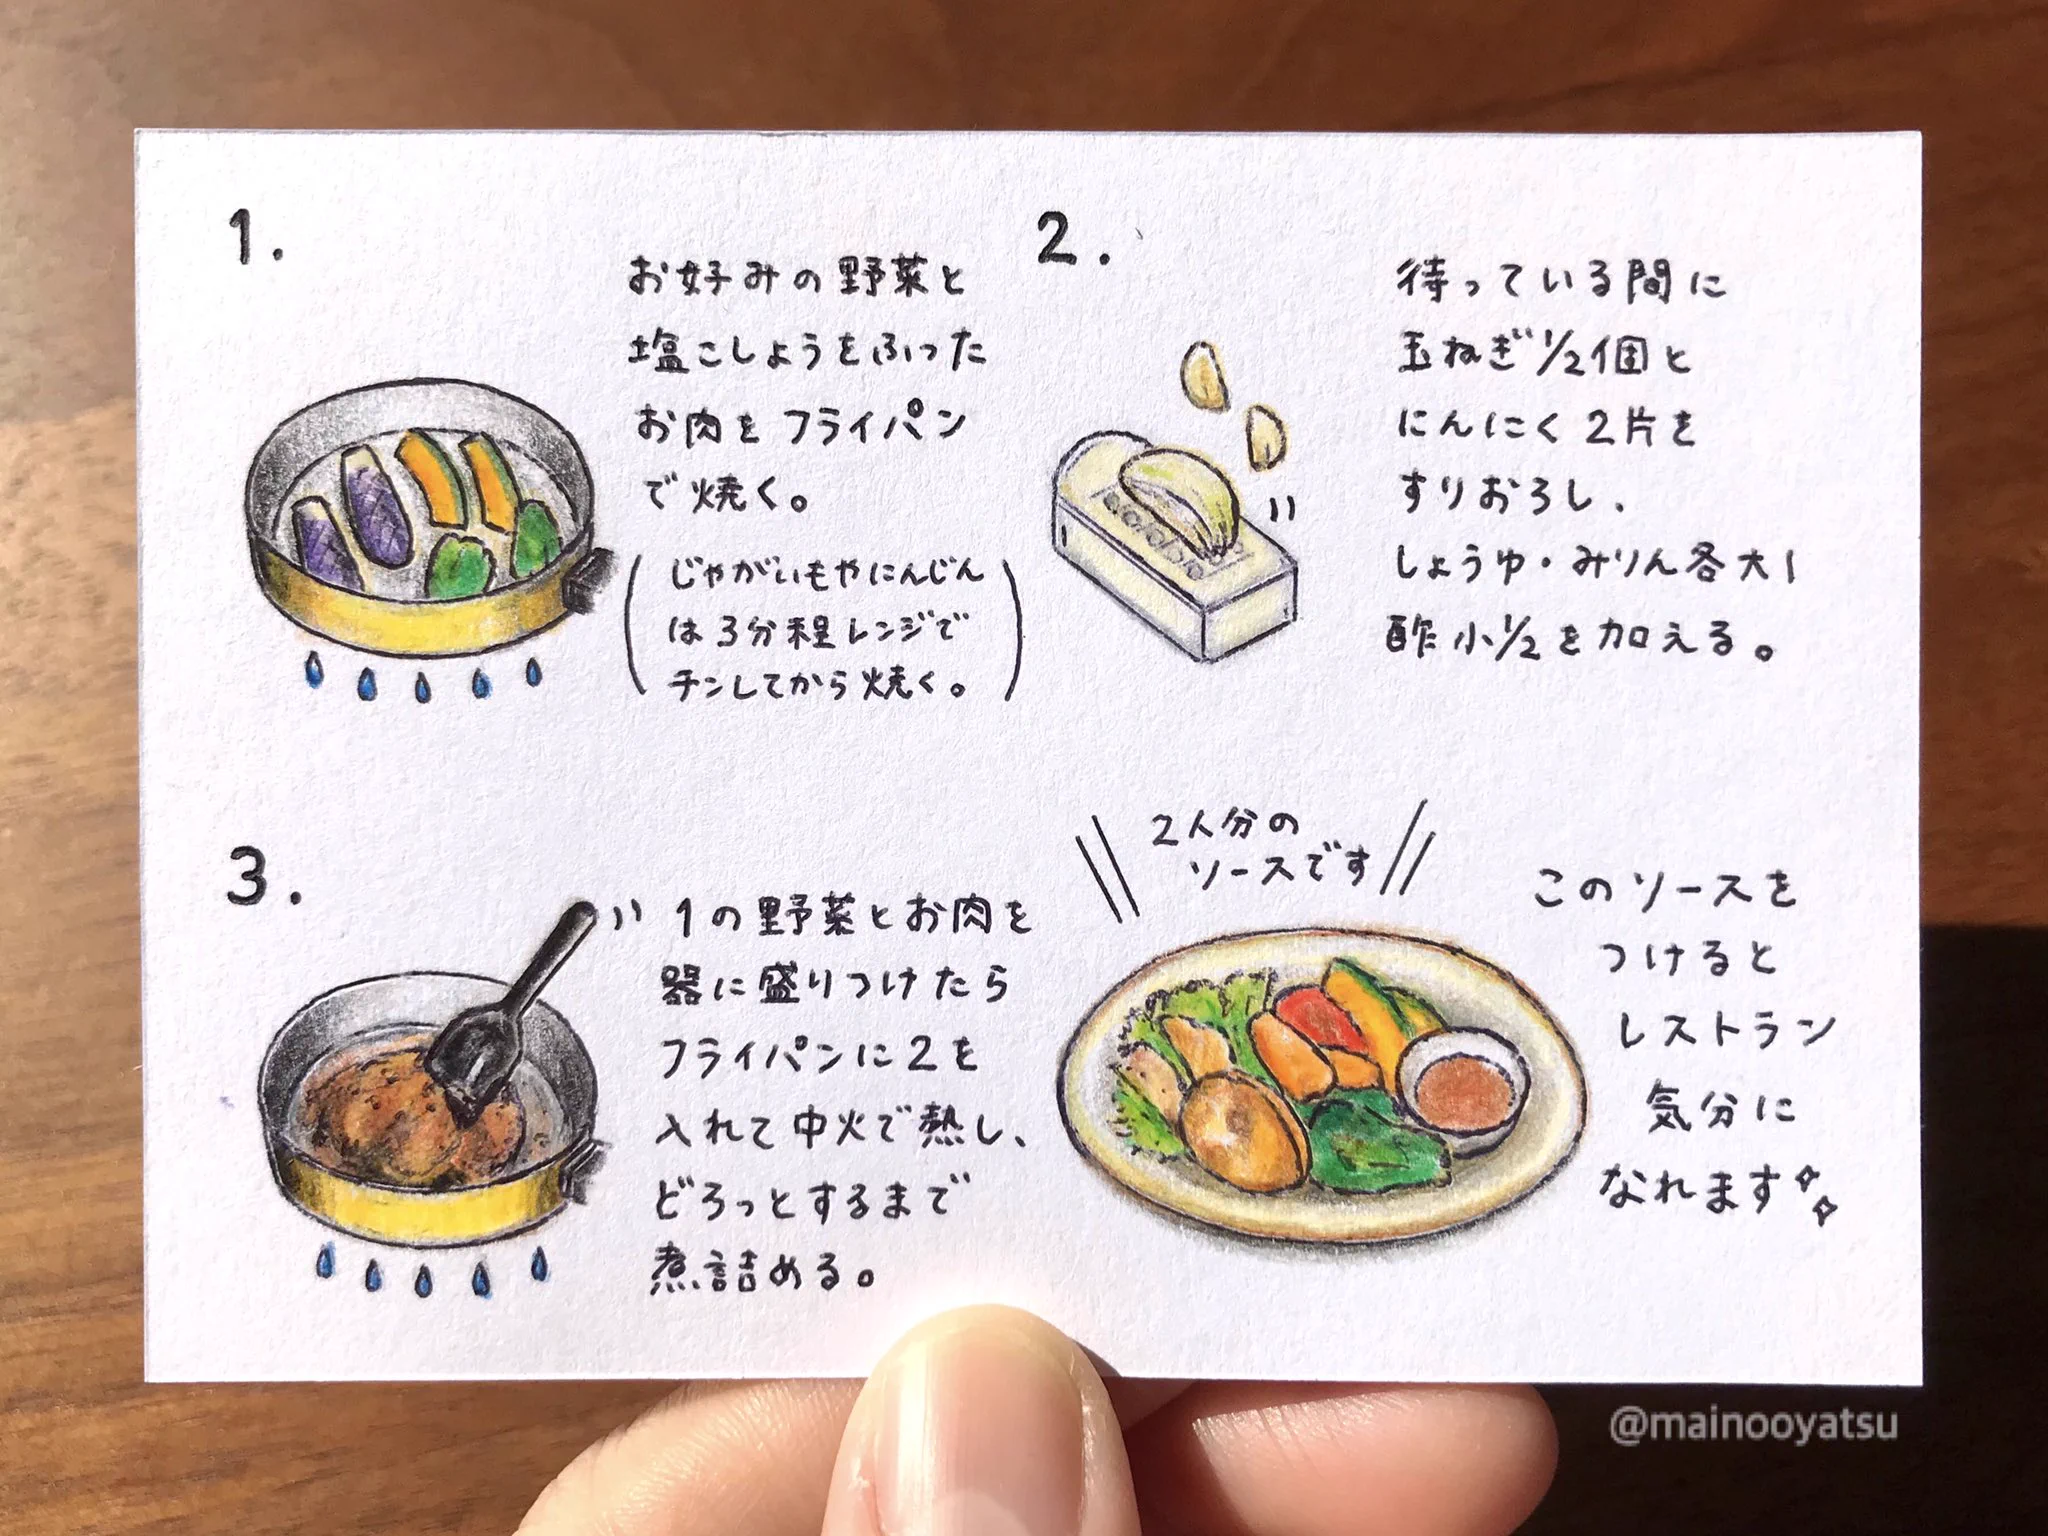 1.
お好みの野菜と
塩こしょうをふった
お肉をフライパン
で焼く。
(じゃがいもやにんじん
は3分程レンジで
チンしてから焼く。)
2.
待っている間に
玉ねぎ1/2個と
にんにく2片を
すりおろし、
しょうゆ・みりん各大1
酢小1/2を加える。
3.
1の野菜とお肉を
器に盛りつけたら
フライパンに2を
入れて中火で熱し、
どろっとするまで
煮詰める。
2人分の
ソースです
このソースを
つけると
レストラン
気分に
なれます
@mainooyatsu